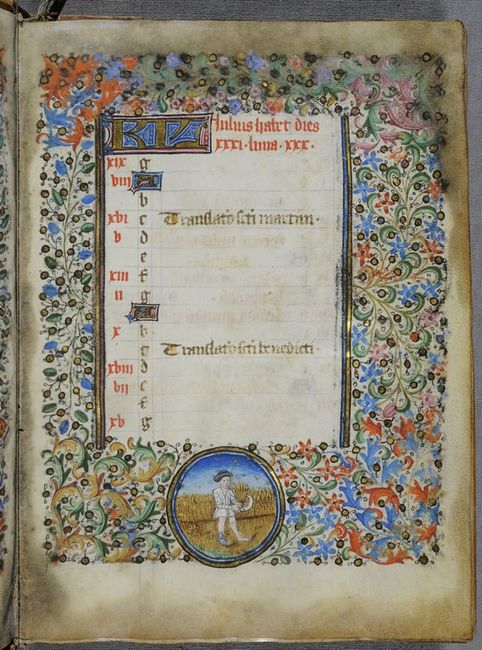 KL Iulius habet dies
xxxi. luna. xxx.
xix g
viii A
b
xvi c Translatio scti martini.
v d
e
xiii f
ii g
A
x b
c Translatio scti benedicti.
xviii d
vii e
f
xv g